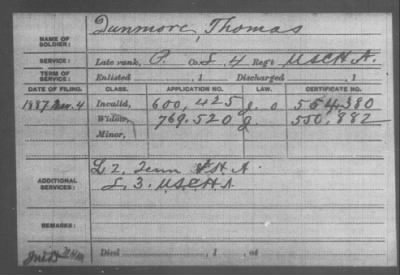 NAME OF SOLDIER: Dunmore, Thomas
SERVICE: Late rank, P. Co. L, 4 Reg't U.S.C.H.A.
TERM OF SERVICE: Enlisted , 1 Discharged , 1
DATE OF FILING. CLASS. APPLICATION NO. LAW. CERTIFICATE NO.
1887 Nov. 4 Invalid, 600,425 554,380
Widow, 769.520 550,882
Minor,
ADDITIONAL SERVICES: L 2, Tenn H A.
L. 3. U.S.C.H.A
REMARKS:
Died , 1 , at